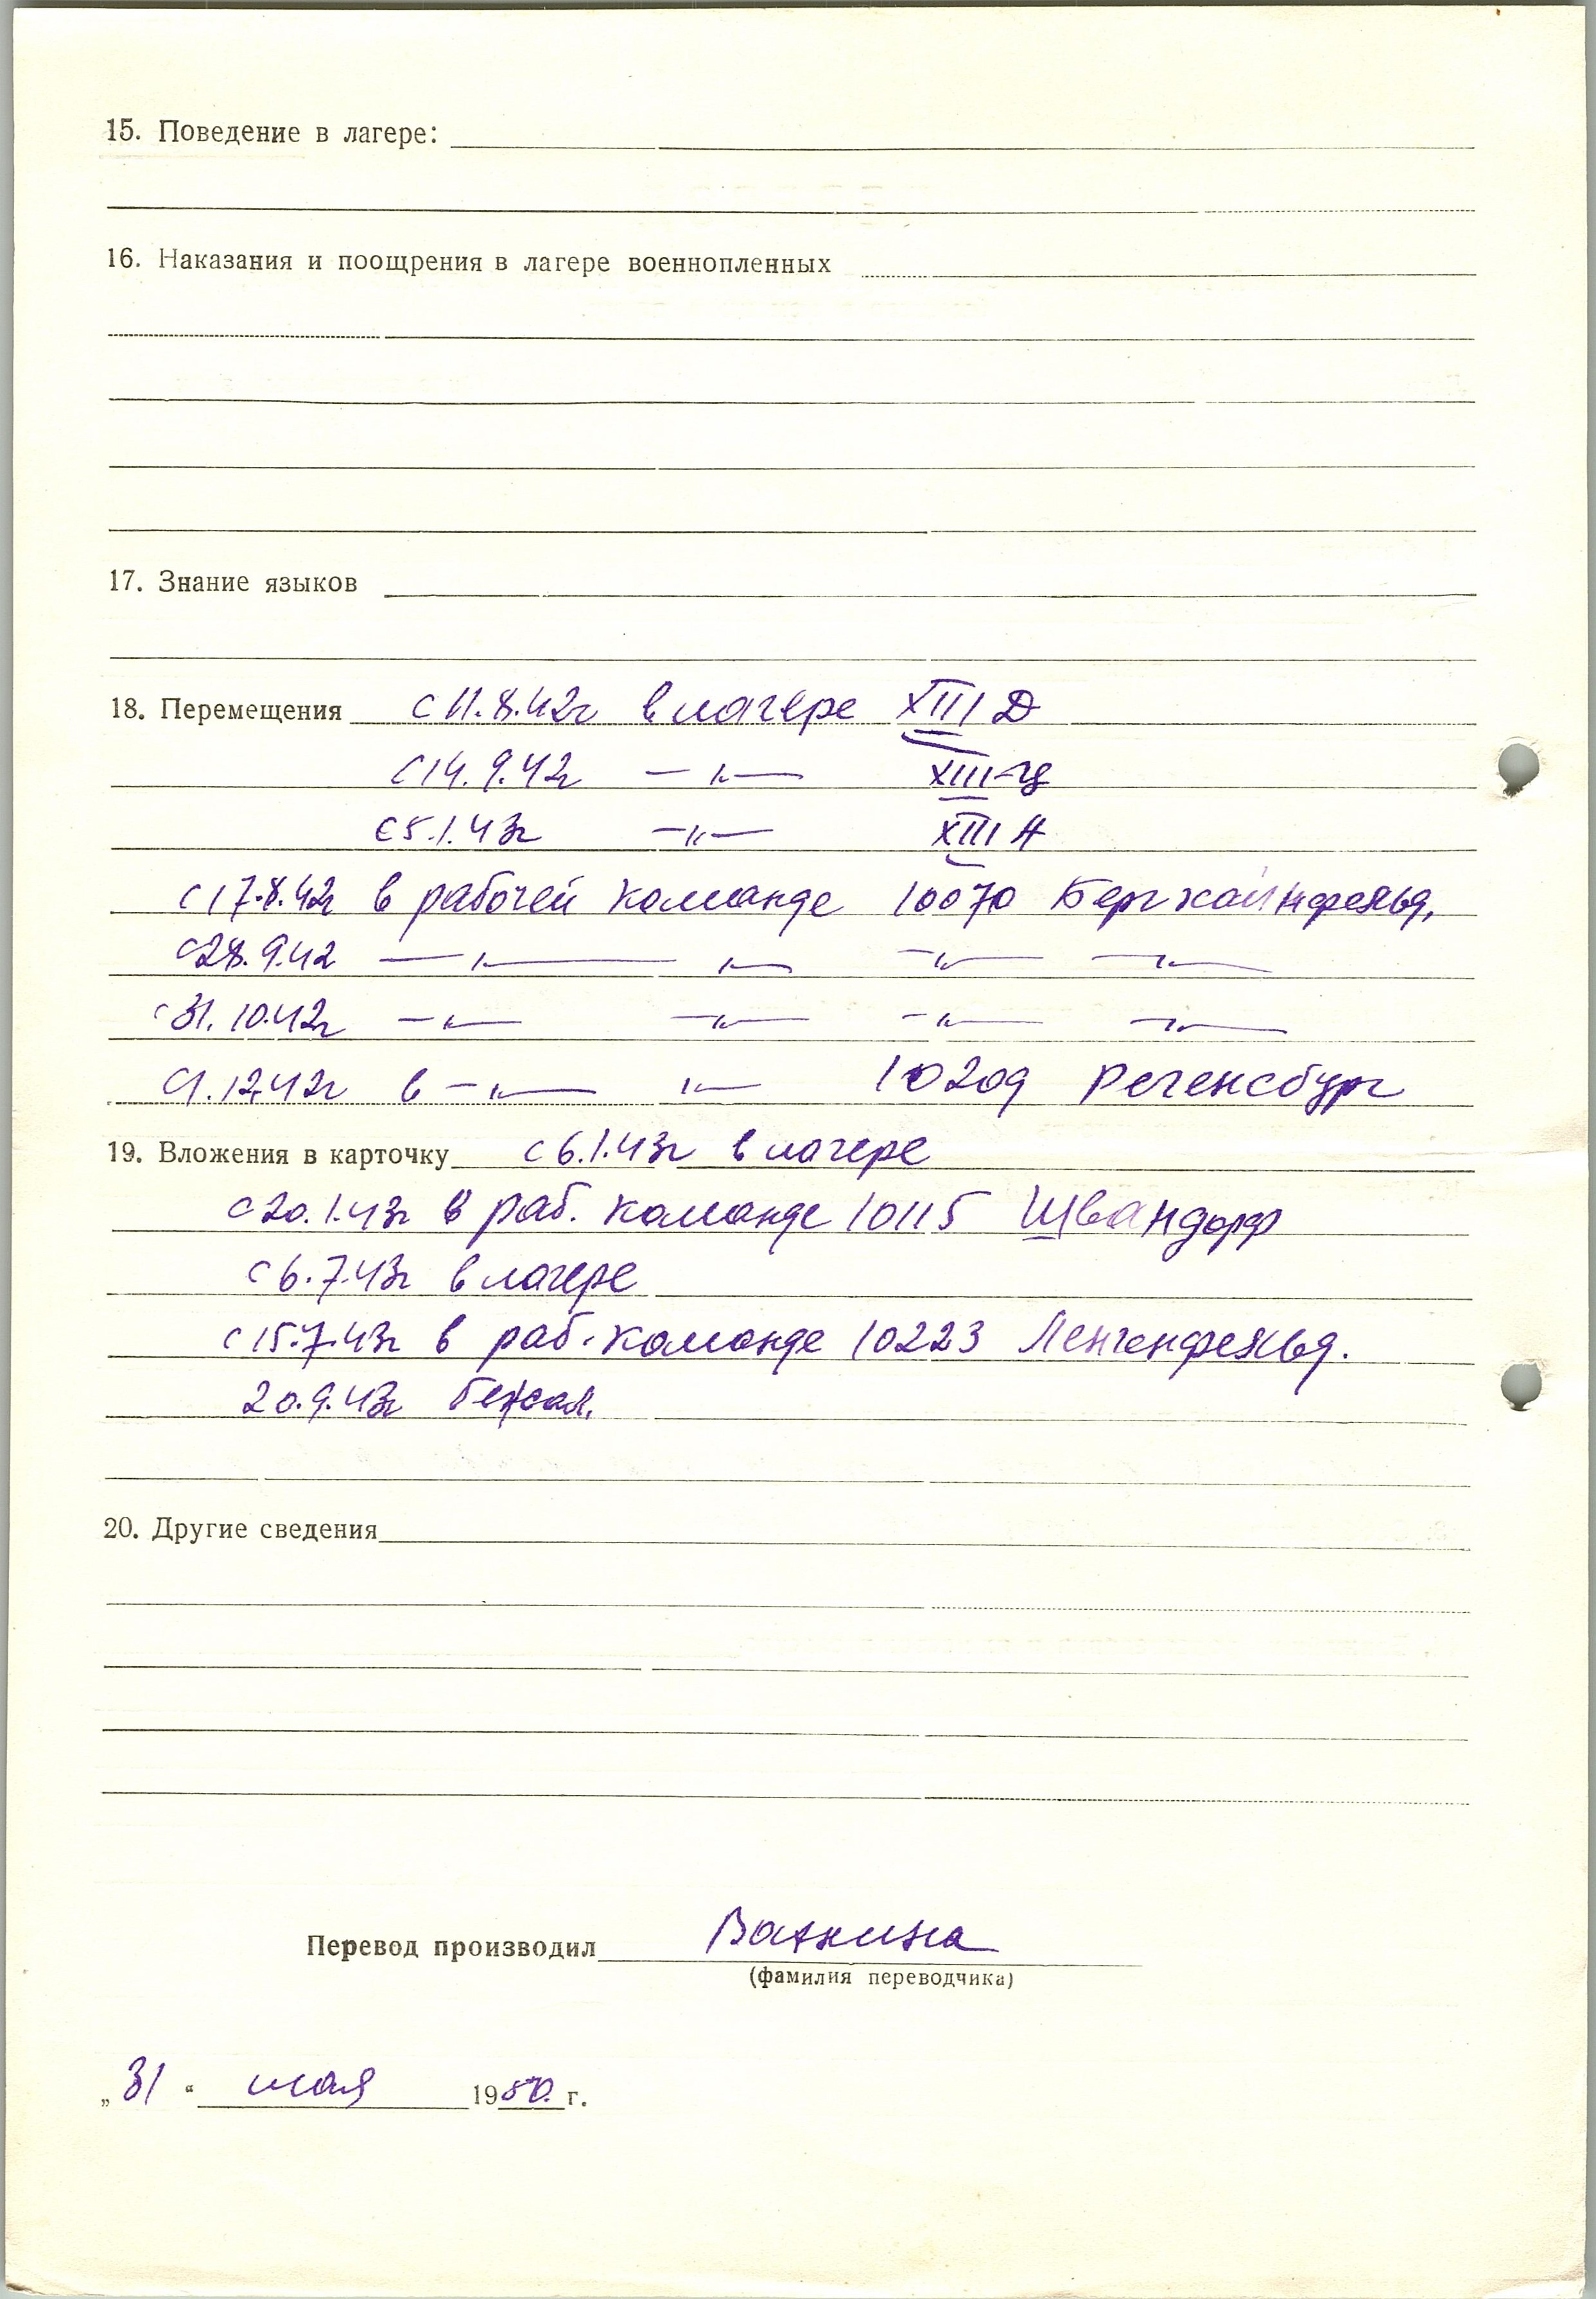 15. Поведение в лагере:
16. Наказания и поощрения в лагере военнопленных
17. Знание языков
18. Перемещения с 11.8.42г в лагере XIII Д
с 14.9.42г —〃— XIII-Ц
с 5.1.43г —〃— XIII А
с 17.8.42г в рабочей команде 10070 Бергхаинфельд.
с 28.9.42 —〃— 〃— —〃— —〃—
с 31.10.42г —〃— —〃— —〃— —〃—
с 1.12.42г в —〃— 〃— 10209 Регенсбург
19. Вложения в карточку с 6.1.43г в лагере
с 20.1.43г в раб. команде 10115 Швандорф
с 6.7.43г в лагере
с 15.7.43г в раб. команде 10223 Ленгенфельд.
20.9.43г бежал.
20. Другие сведения
Перевод производил
(фамилия переводчика)
„31“ мая 1950. г.